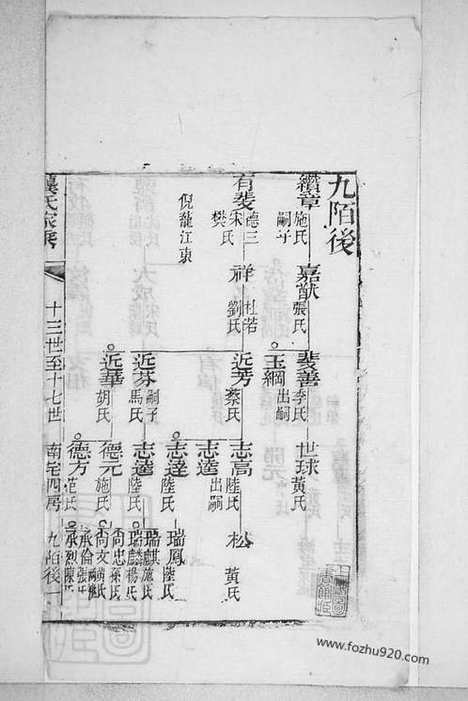 九陌後
纘章 施氏 嗣子
嘉猷 張氏
斐善 李氏
世球 黃氏
玉綱 出嗣
有斐 德三 宋氏 樊氏
祥 杜若 劉氏
近芳 蔡氏
志高 陸氏
松 黃氏
志遠 出嗣
倪龍江東
近芬 嗣子 馬氏
志達 陸氏
瑞鳳 陸氏
志遠 陸氏
瑞麒 施氏
瑞麟 楊氏
近華 胡氏
德元 施氏
尚忠 孫氏
尚文 黃氏
德方 范氏
承倫 張氏
承烈 陳氏
氏家乘
十三世至十七世
南宅四房
九陌後一
www.fozhu920.com